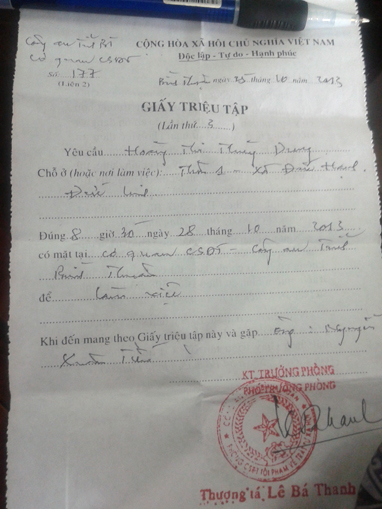 Công an Tỉnh B
CỘNG HÒA XÃ HỘI CHỦ NGHĨA VIỆT NAM
Cơ quan CSĐT
Độc lập - Tự do - Hạnh phúc
Số 177
(Liên 2)
Bình Thuận ngày tháng 10 năm 2013
GIẤY TRIỆU TẬP
(Lần thứ 3)
Yêu cầu Hoàng Thị Thùy Dung
Chỗ ở (hoặc nơi làm việc): Thôn 1 - xã Đức Hạnh
Đức Linh
Đúng 8 giờ 30 ngày 28 tháng 10 năm 2013
có mặt tại cơ quan CSĐT - Công an Tỉnh
Bình Thuận
để làm việc
Khi đến mang theo Giấy triệu tập này và gặp ông: Nguyễn
Xuân
KT. TRƯỞNG PHÒNG
PHÓ TRƯỞNG PHÒNG
Thượng tá Lê Bá Thanh